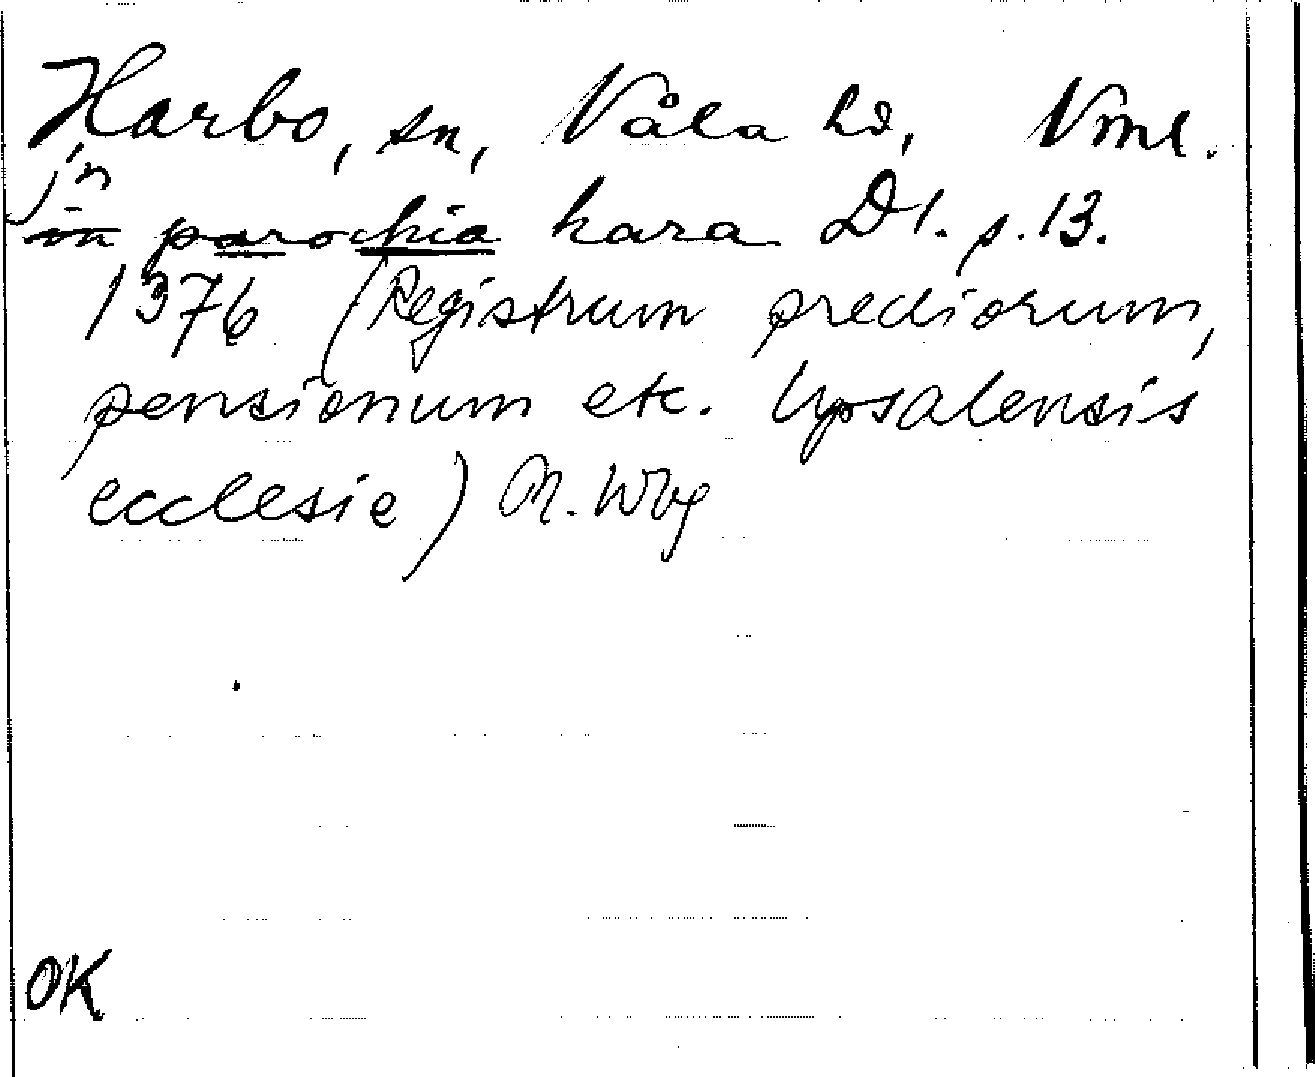 Harbo, sn, Våla hd, Vml.
jn
in parochia hara D1. s. 13.
1376 (Registrum prediorum,
pensionum etc. Upsalensis
ecclesie) M. Wbg
OK